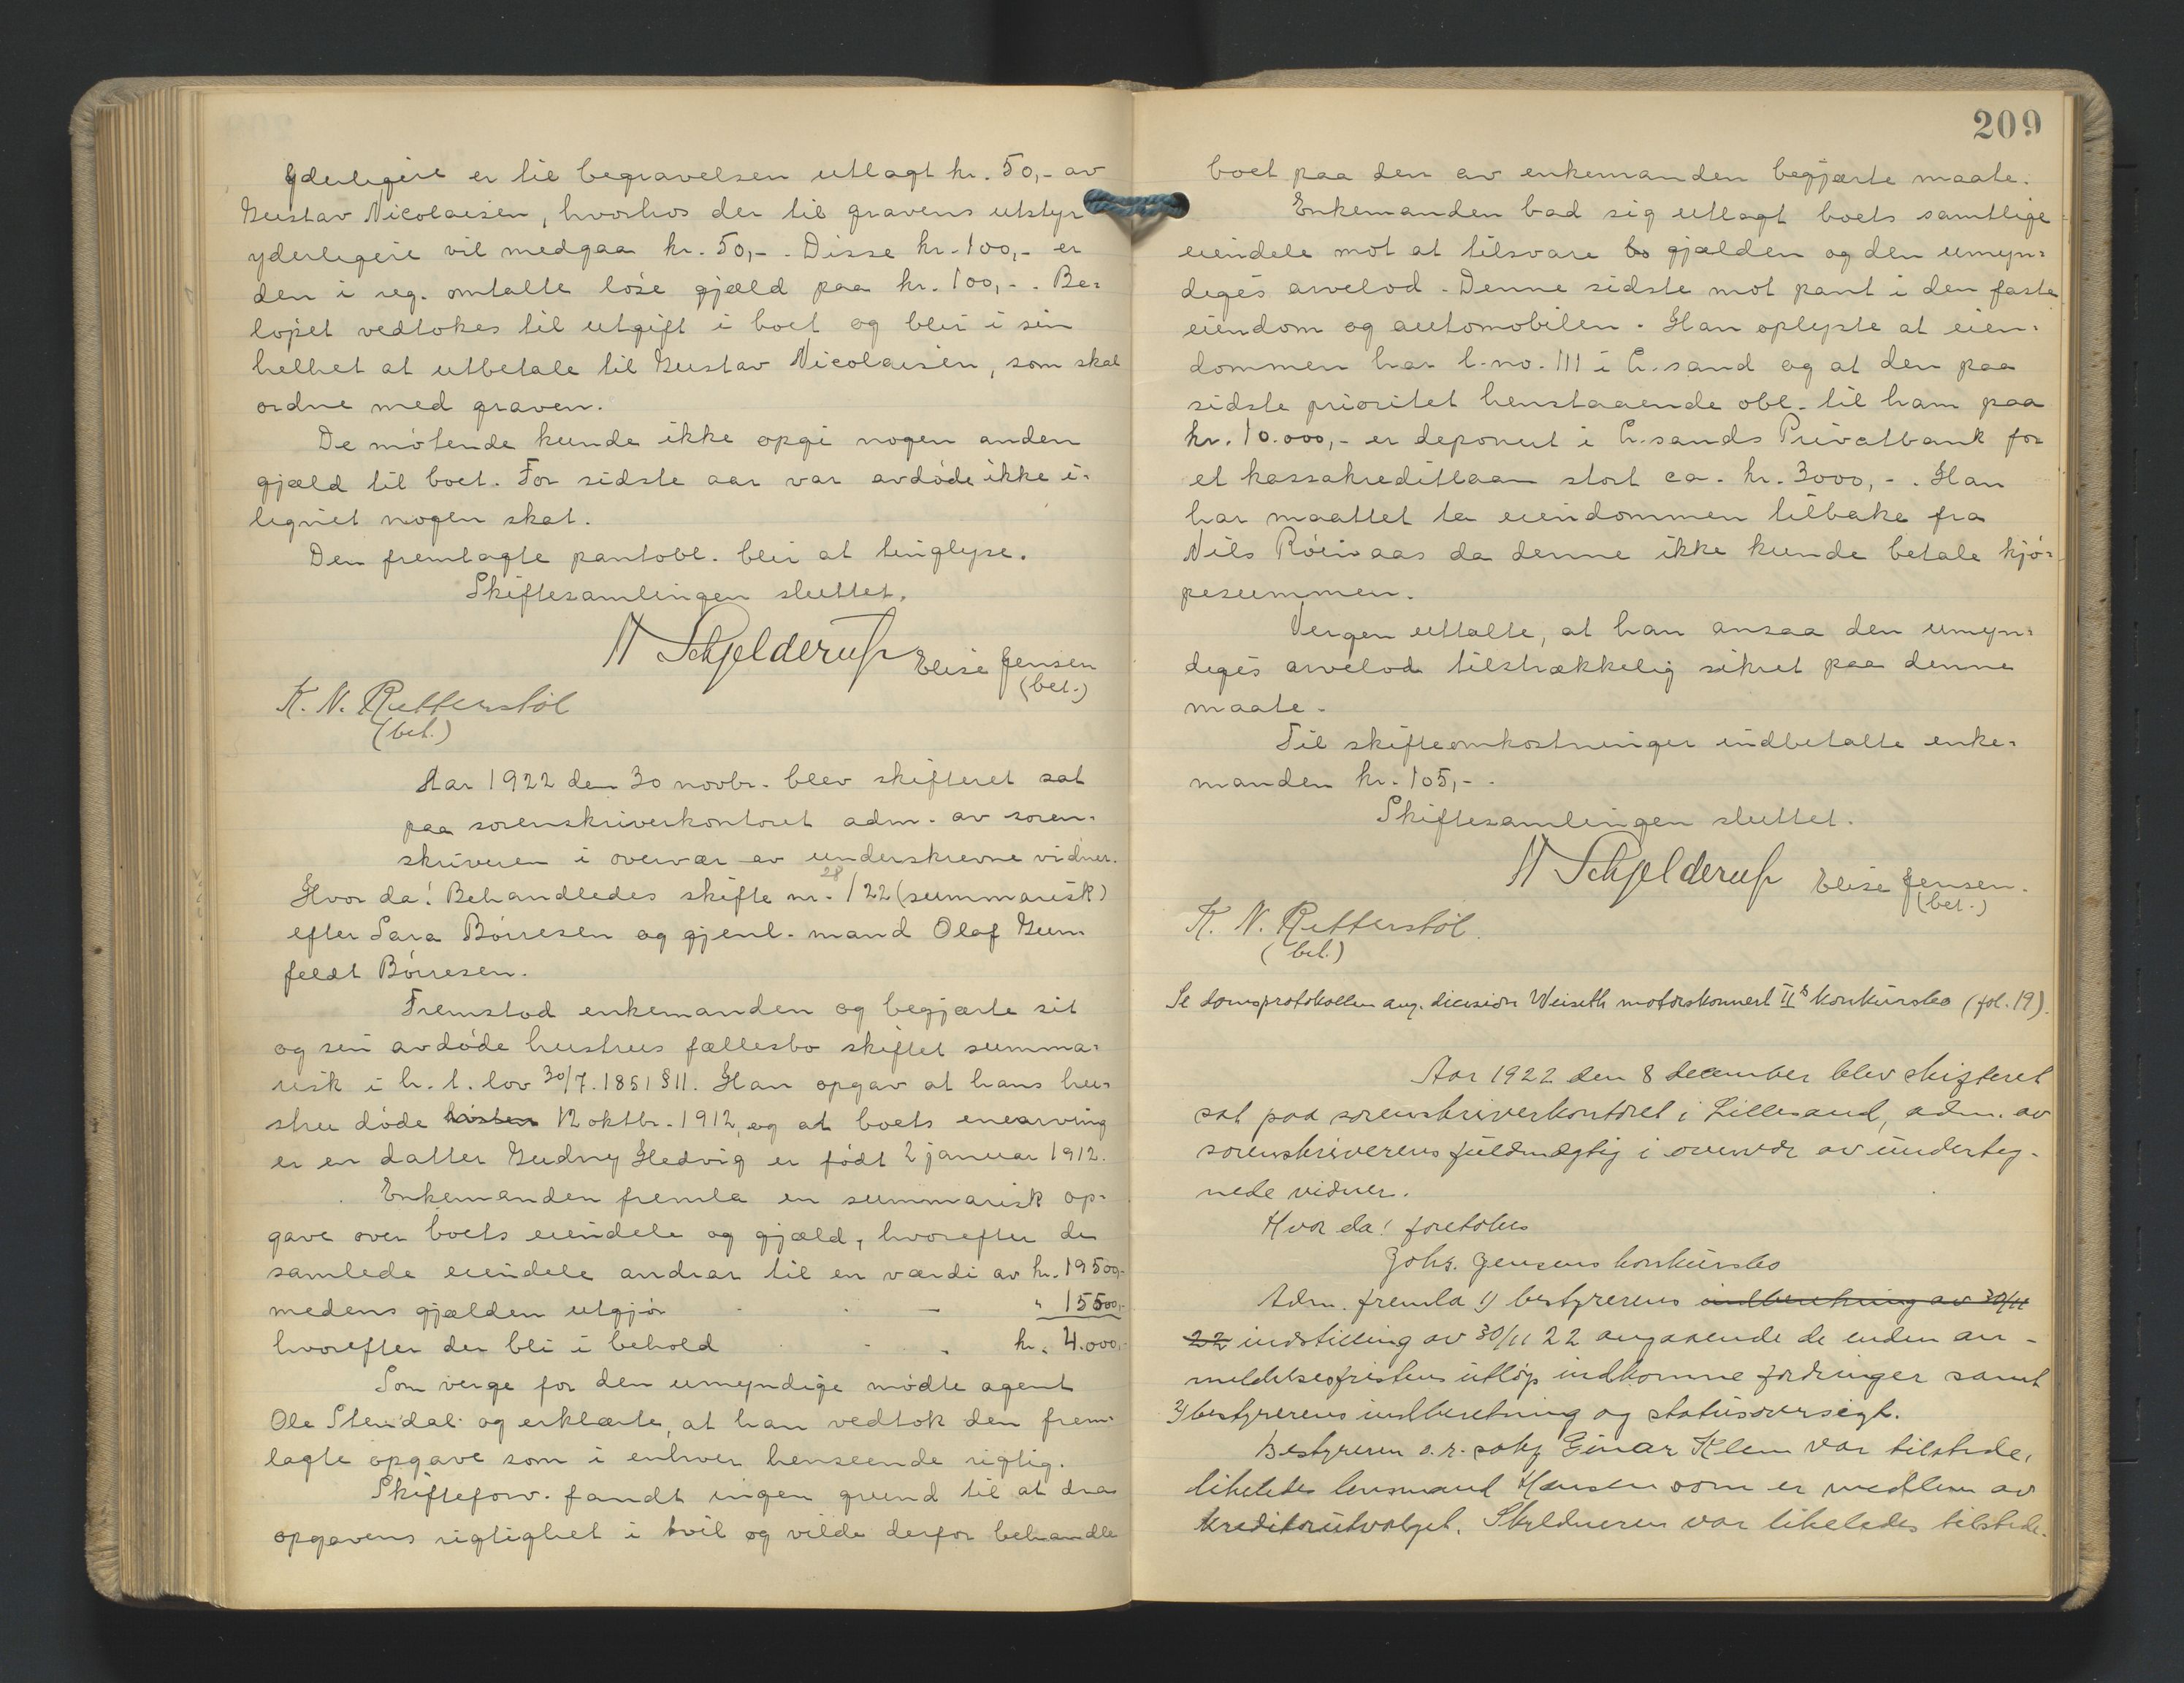 Yderligere er til begravelsen utlagt kr. 50,- av
Gustav Nicolaisen, hvorhos der til gravens utstyr
yderligere vil medgaa kr. 50,-. Disse kr. 100,- er
den i reg. omtalte løse gjæld paa kr. 100,-. Be-
løpet vedtokes til utgift i boet og blir i sin
helhet at utbetale til Gustav Nicolaisen, som skal
ordne med graven.
De møtende kunde ikke opgi nogen anden
gjæld til boet. For sidste aar var avdøde ikke i-
lignet nogen skat.
Den fremlagte pantobl. blir at tinglyse.
Skiftesamlingen sluttet.
N Schjelderup Elise Jensen
(bet.)
K. N. Retterstøl
(bet.)
Aar 1922 den 30 novbr. blev skifteret sat
paa sorenskriverkontoret adm. av soren-
skriveren i overvær av underskrevne vidner.
Hvor da! Behandledes skifte nr. 28/22 (summarisk)
efter Sara Børresen og gjenl. mand Olaf Gum
feldt Børresen.
Fremstod enkemanden og begjærte sit
og sin avdøde hustrus fællesbo skiftet summa-
risk i h. t. lov 30/7. 1851 § 11. Han opgav at hans hu-
stru døde høsten 12 oktbr. 1912, og at boets enearving
er en datter Gudny Hedvig er født 2 januar 1912.
Enkemanden fremla en summarisk op-
gave over boets eiendele og gjæld, hvorefter de
samlede eiendele andrar til en værdi av kr. 19500,-
medens gjælden utgjør . . — " 15500,-
hvorefter der bli i behold . . . kr. 4.000,-
Som verge for den umyndige mødte agent
Ole Stendal og erklærte, at han vedtok den frem-
lagte opgave som i enhver henseende rigtig.
Skifteforv. fandt ingen grund til at dra
opgavens rigtighet i tvil og vilde derfor behandle
209
boet paa den av enkemanden begjærte maate.
Enkemanden bad sig utlagt boets samtlige
eiendele mot at tilsvare bo gjælden og den umyn-
diges arvelod. Denne sidste mot pant i den faste
eiendom og automobilen. Han oplyste at eien-
dommen har l.no. 111 i L.sand og at den paa
sidste prioritet henstaaende obl. til ham paa
kr. 10.000,- er deponert i L.sands Privatbank for
et kassakreditlaan stort ca. kr. 3000,-. Han
har maattet ta eiendommen tilbake fra
Nils Røinaas da denne ikke kunde betale kjø-
pesummen.
Vergen uttalte, at han ansaa den umyn-
diges arvelod tilstrækkelig sikret paa denne
maate.
Til skifteomkostninger indbetalte enke-
manden kr. 105,-.
Skiftesamlingen sluttet.
N Schjelderup Elise Jensen.
(bet.)
K. N. Retterstøl.
(bet.)
Se domsprotokollen ang. decision Weiseth motorskonnert II's konkursbo (fol. 19).
Aar 1922 den 8 december blev skifteret
sat paa sorenskriverkontoret i Lillesand, adm. av
sorenskriverens fuldmægtig i overvær av underteg-
nede vidner.
Hvor da! foretokes
Johs. Jensens konkursbo
Adm. fremla 1) bestyrerens indberetning av 30/11
22 indstilling av 30/11 22 angaaende de inden an-
meldelsesfristens utløp indkomne fordringer samt
2) bestyrerens indberetning og statusoversigt.
Bestyreren o.r. sakf Einar Klem var tilstede,
likeledes lensmand Hansen som er medlem av
kreditorutvalget. Skyldneren var likeledes tilstede.